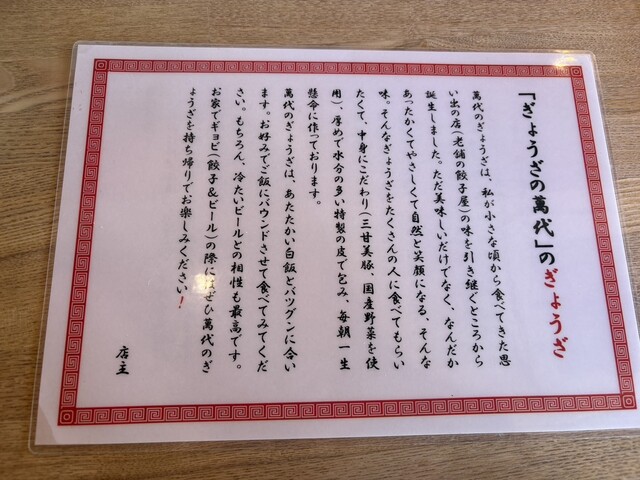 「ぎょうざの萬代」のぎょうざ
萬代のぎょうざは、私が小さな頃から食べてきた思
い出の店(老舗の餃子屋)の味を引き継ぐところから
誕生しました。ただ美味しいだけでなく、なんだか
あったかくてやさしくて自然と笑顔になる、そんな
味。そんなぎょうざをたくさんの人に食べてもらい
たくて、中身にこだわり(三甘美豚、国産野菜を使
用)、厚めで水分の多い特製の皮で包み、毎朝一生
懸命に作っております。
萬代のぎょうざは、あたたかい白飯とバツグンに合い
ます。お好みでご飯にバウンドさせて食べてみてくだ
さい。もちろん、冷たいビールとの相性も最高です。
お家でギョビ(餃子&ビール)の際にはぜひ萬代のぎ
ょうざを持ち帰りでお楽しみください!
店主